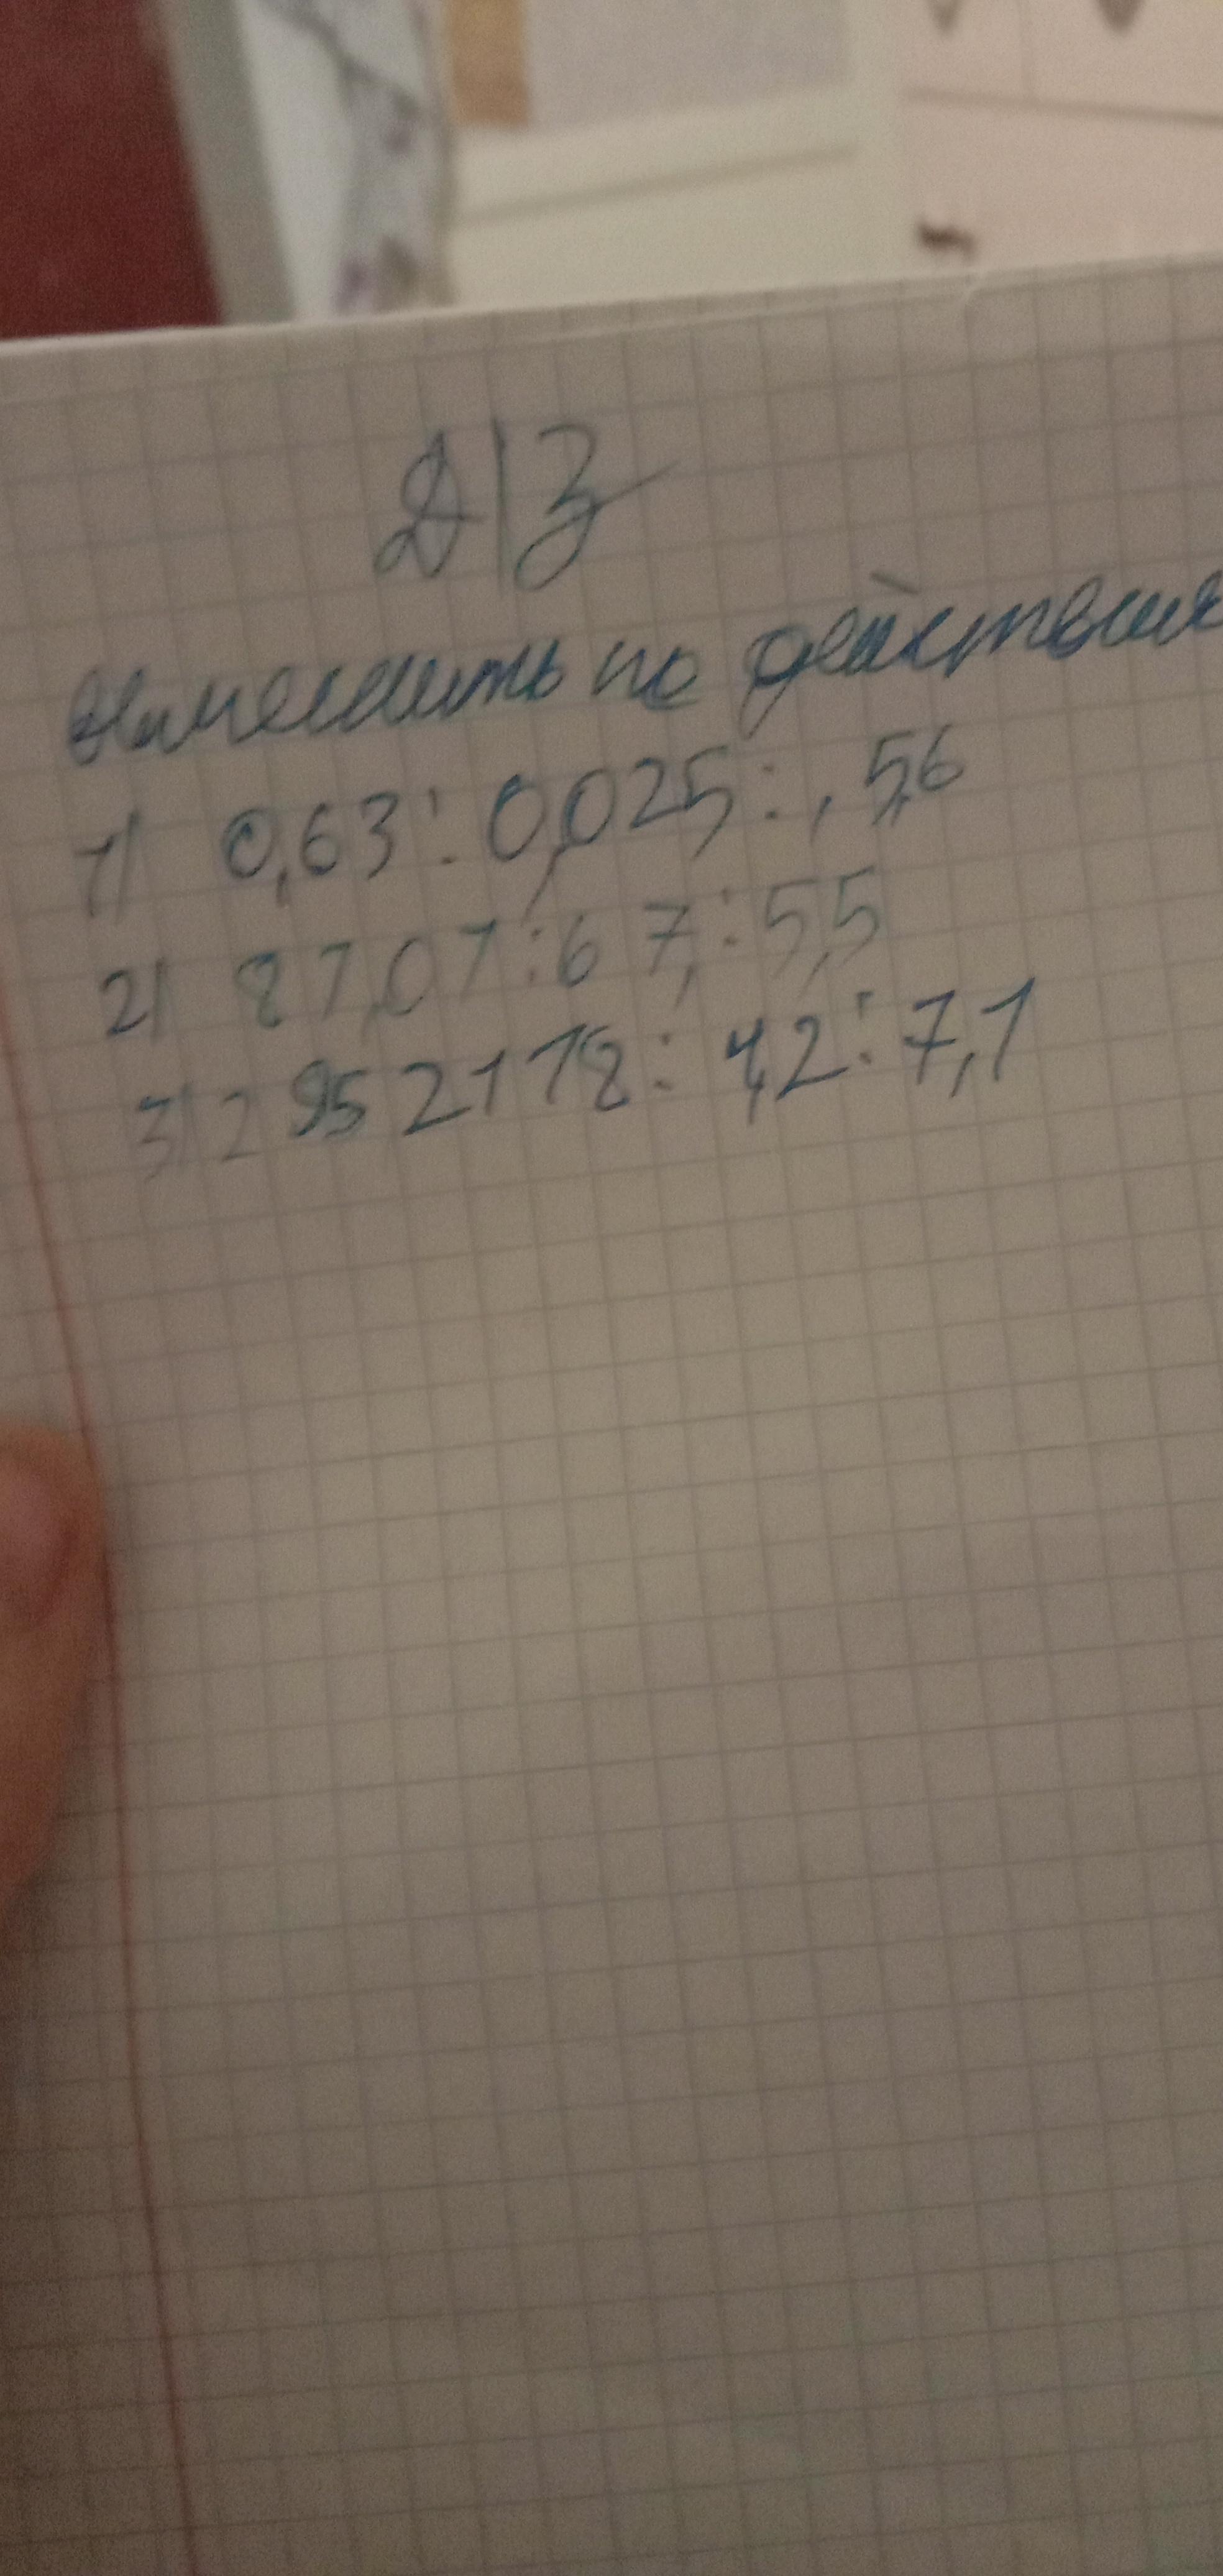 Д/З
Вычислить по действиям
1) 0,63 : 0,025 : , 5,6
2) 87,07 : 67, : 5,5
3) 2 952178 : 4,2 : 7,1